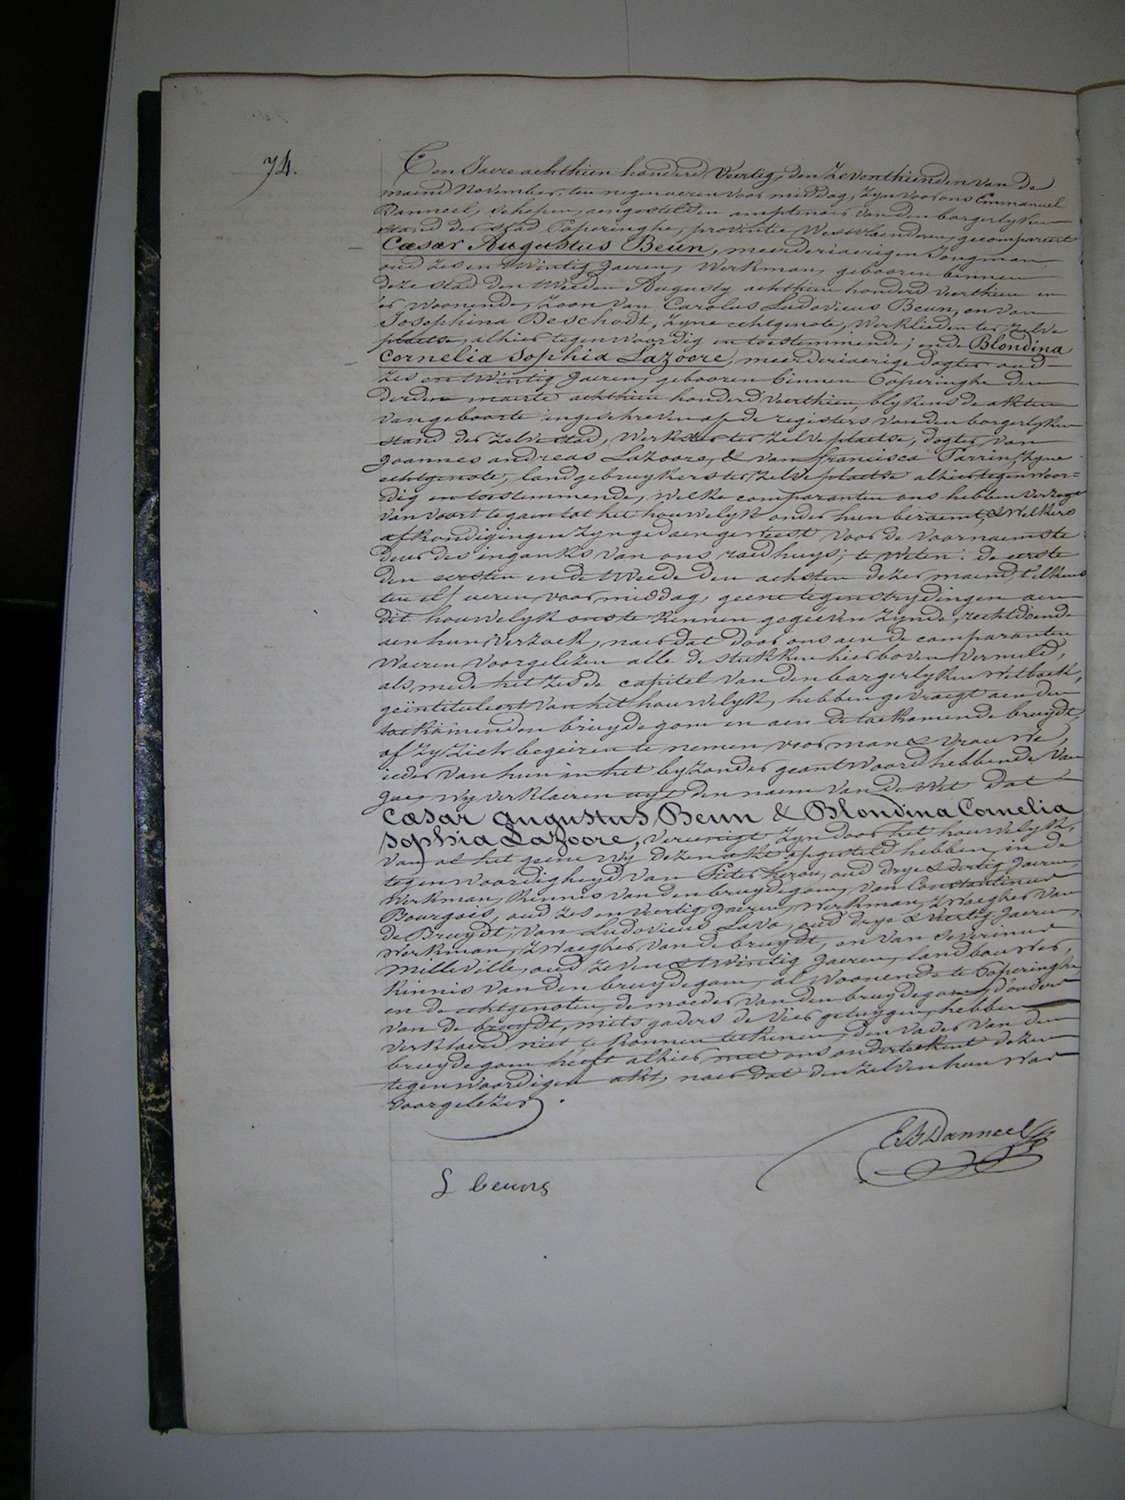 74.
Ten Jaere achthien honderd Veertig, den Zeventhienden van de
maend November, ten negen ueren voor middag, zyn voor ons Emmanuel
Danneel, schepen, aengestelden amptenaer van den borgerlyken
stand der stad Poperinghe, provintie Westvlaenderen, gecompareert
Cæsar Augustus Beun, meerderjaerigen Jongman
oud zes en twintig Jaeren, Werkman, gebooren binnen
deze stad den tweeden Augusty achthien honderd veerthien en
er woonende, zoon van Carolus Ludovicus Beun, en van
Josephina Deschodt, zyne echtgenote, Werklieden ter zelve
plaetse, alhier tegenwoordig en toestemmende; ende Blondina
Cornelia Sophia Lazoore, meerderjaerige dogter oud
zes en twintig Jaeren, gebooren binnen Poperinghe den
derden maerte achthien honderd veerthien, blykens de akten
van geboorte ingeschreven op de registers van den borgerlyken
stand der zelve stad, Werkster ter zelve plaetse, dogter van
Joannes andreas Lazoore, & van francisca Parrin, zyne
echtgenote, landgebruykers ter zelve plaetse alhier tegenwoor-
dig en toestemmende, Welke comparanten ons hebben verzogt
van voort te gaen tot het houwelyk onder hun beraemt, & Welkers
afkondigingen zyn gedaen geweest voor de voornaemste
deur des ingangks van ons raedhuys; te weten: de eerste
den eersten en de tweede den achsten dezer maend, t'elkens
ten elf ueren voor middag, geene tegenstrydingen aen
dit houwelyk onste kennen gegeeven zynde, rechtdoende
aen hun verzoek, naer dat door ons aen de comparanten
Waeren voorgelezen alle de stukken hier boven vermeld,
als mede het zesde capitel van den borgerlyken Wetboek,
geïntituleert van het houwelyk, hebben gevraegt aen den
toekomenden bruydegom en aen de toekomende bruydt,
of zy zich begeiren te nemen voor man & vrouwe,
ieder van hun in het byzonder geantwoord hebbende van
Jae, wy verklaeren uyt den naem van de Wet dat
Cæsar augustus Beun & Blondina Cornelia
Sophia Lazoore, vereenigt zyn door het houwelyk,
van al het geene wy dezen akt opgesteld hebben, in de
tegenwoordigheyd van Pieter oud drye & dertig Jaeren
Werkman, kennis van den bruydegom, van Constantinus
Bourgois, oud zes en veertig Jaeren, Werkman, zwaegher van
de Bruydt, van Ludovicus Lava, oud drye & veertig Jaeren,
Werkman, zwaegher van de bruydt, en van Severinus
Milleville, oud zeven & twintig Jaeren, landbouwer,
kennis van den bruydegom, al woonende te Poperinghe
en de echtgenoten, de moeder van den bruydegom, d'ouders
van de bruydt, mits gaders de vier getuygen, hebben
verklaerd niet te konnen teekenen, den vader van den
bruydegom heeft alhier met ons onderteekent dezen
tegenwoordigen akt, naer dat den zelven hun was
voorgelezen.
E. Danneel
L beuns